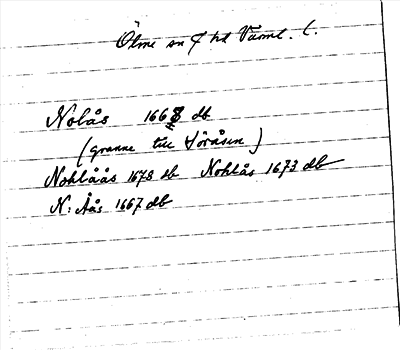 Ölme sn Värml.
Nolås 1668 db
(granne till Höråsen)
Nohlåås 1678 db Nohlås 1673 db
N: Åås 1667 db